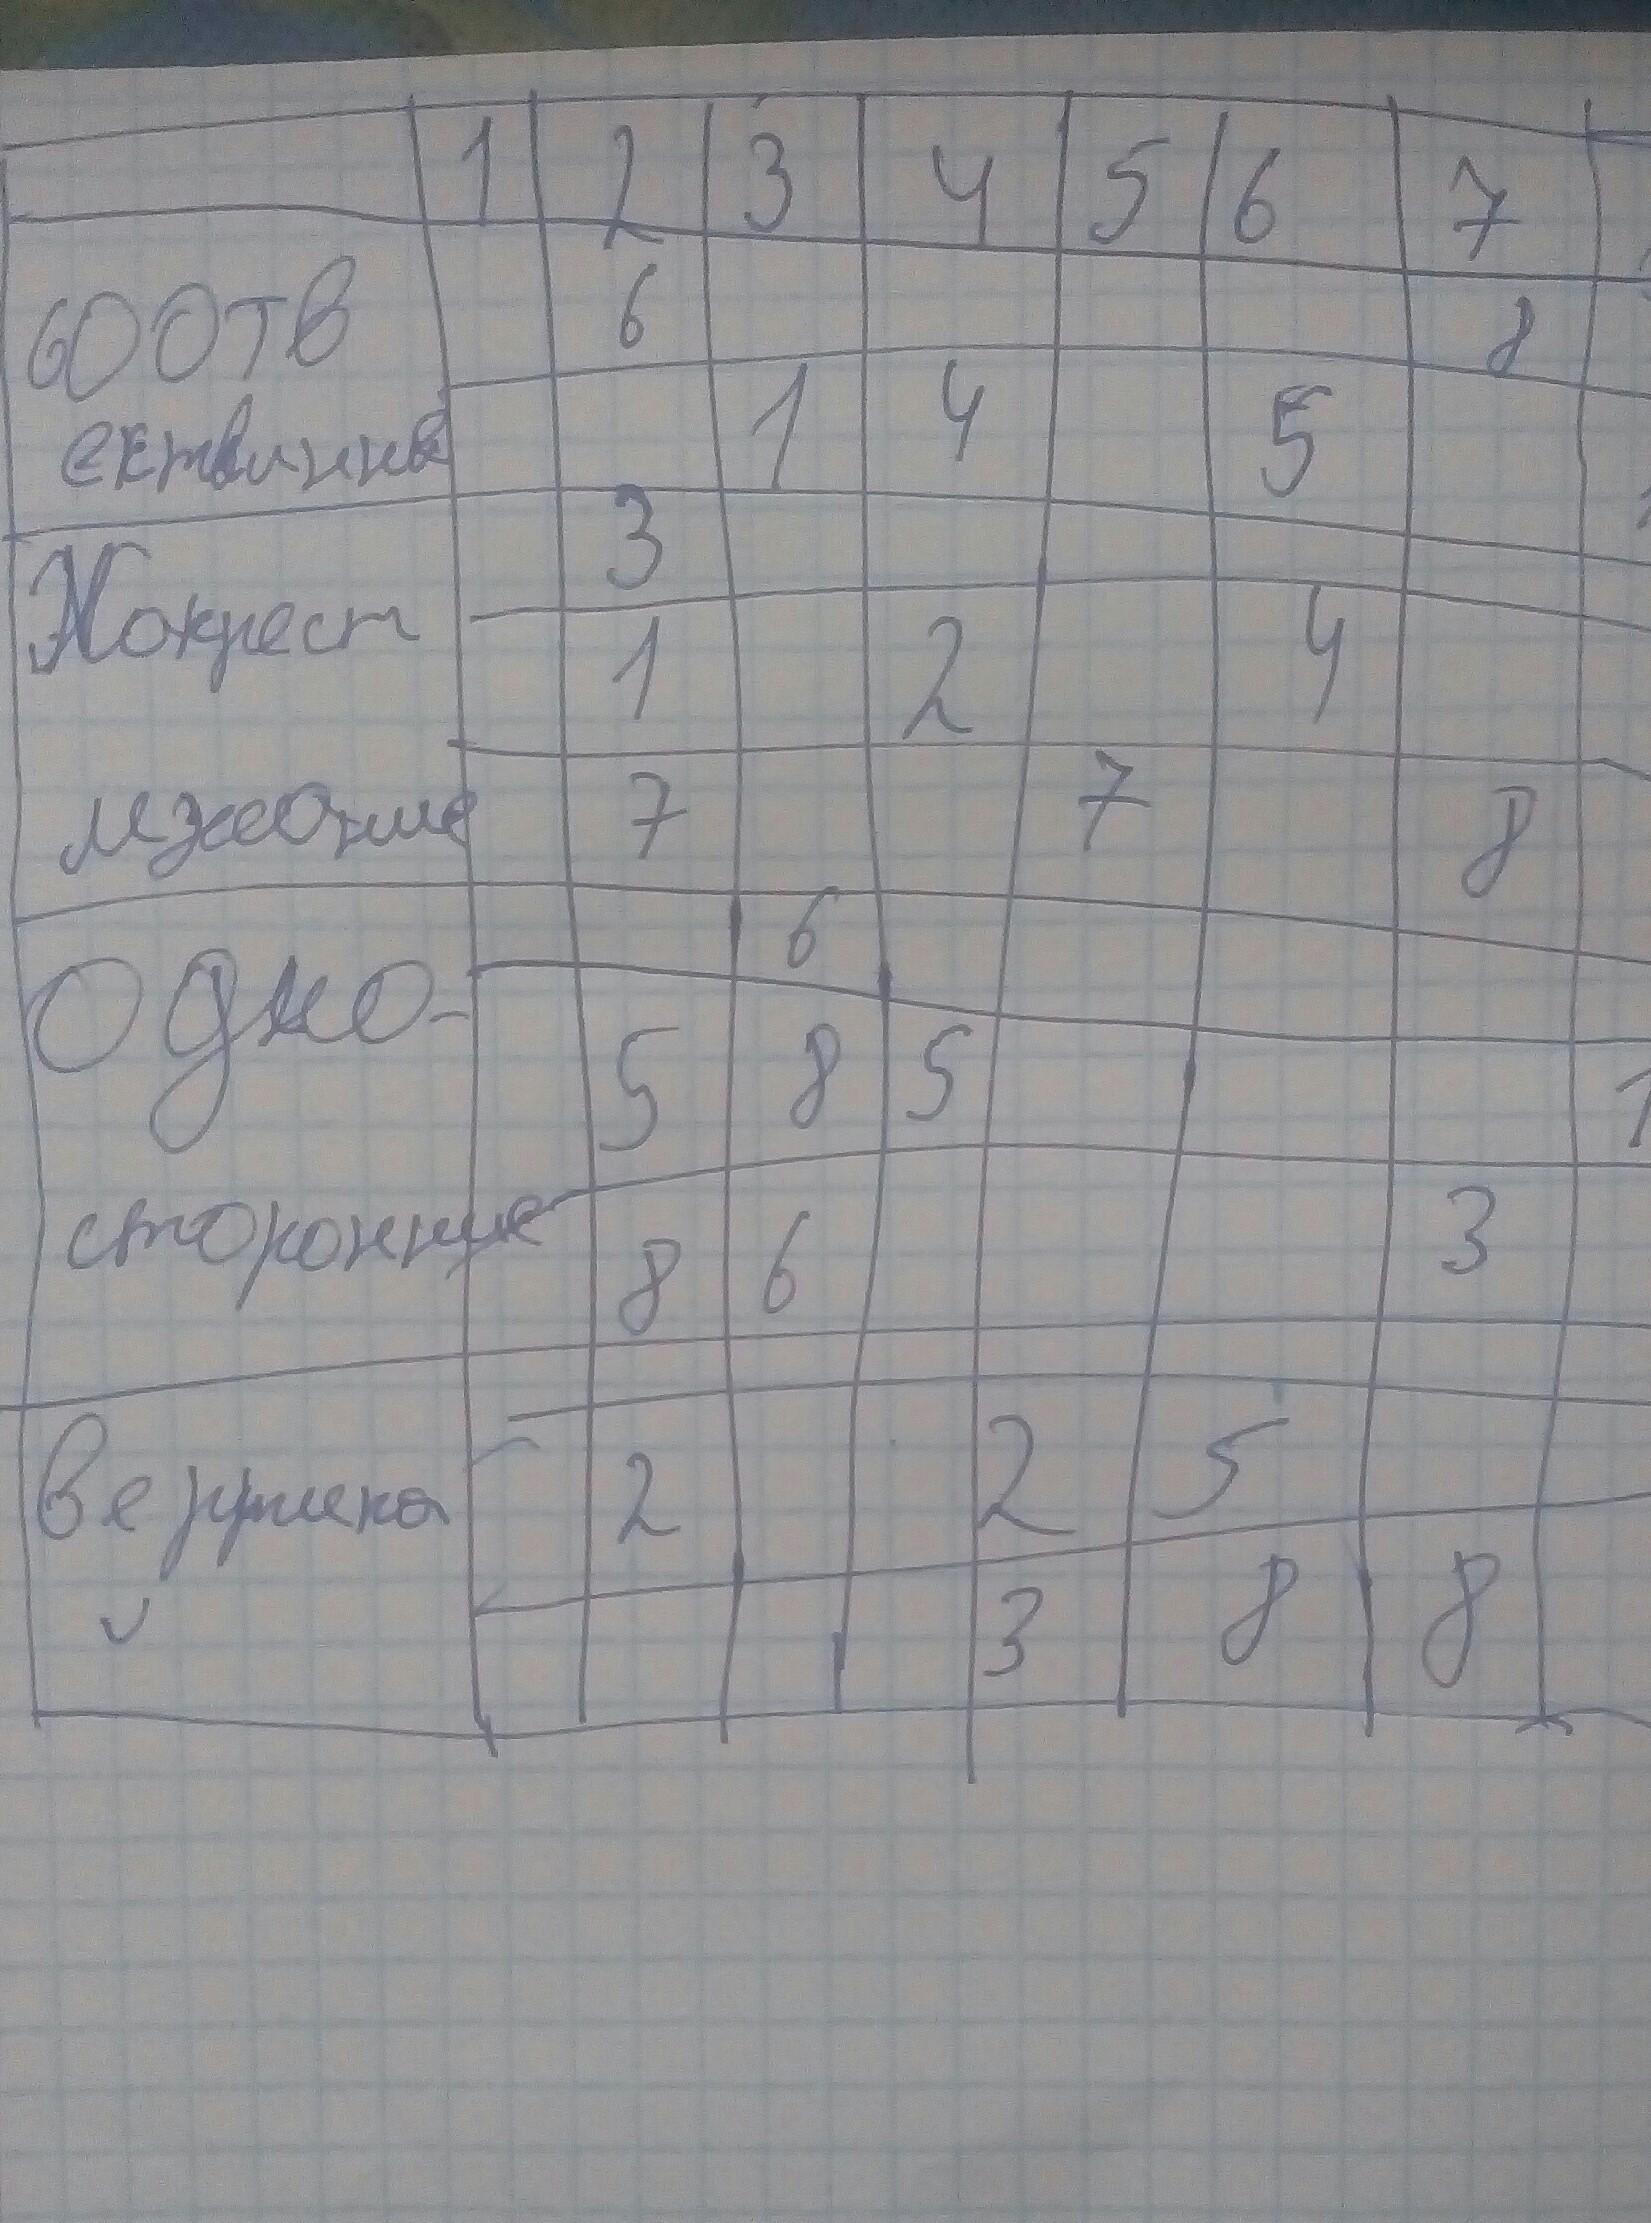 1 2 3 4 5 6 7
соотв 6 8
1 4 5
3
1 2 4
7 7 8
6
Одно- 5 8 5 1
сторонние 8 6 3
2 2 5
3 8 8